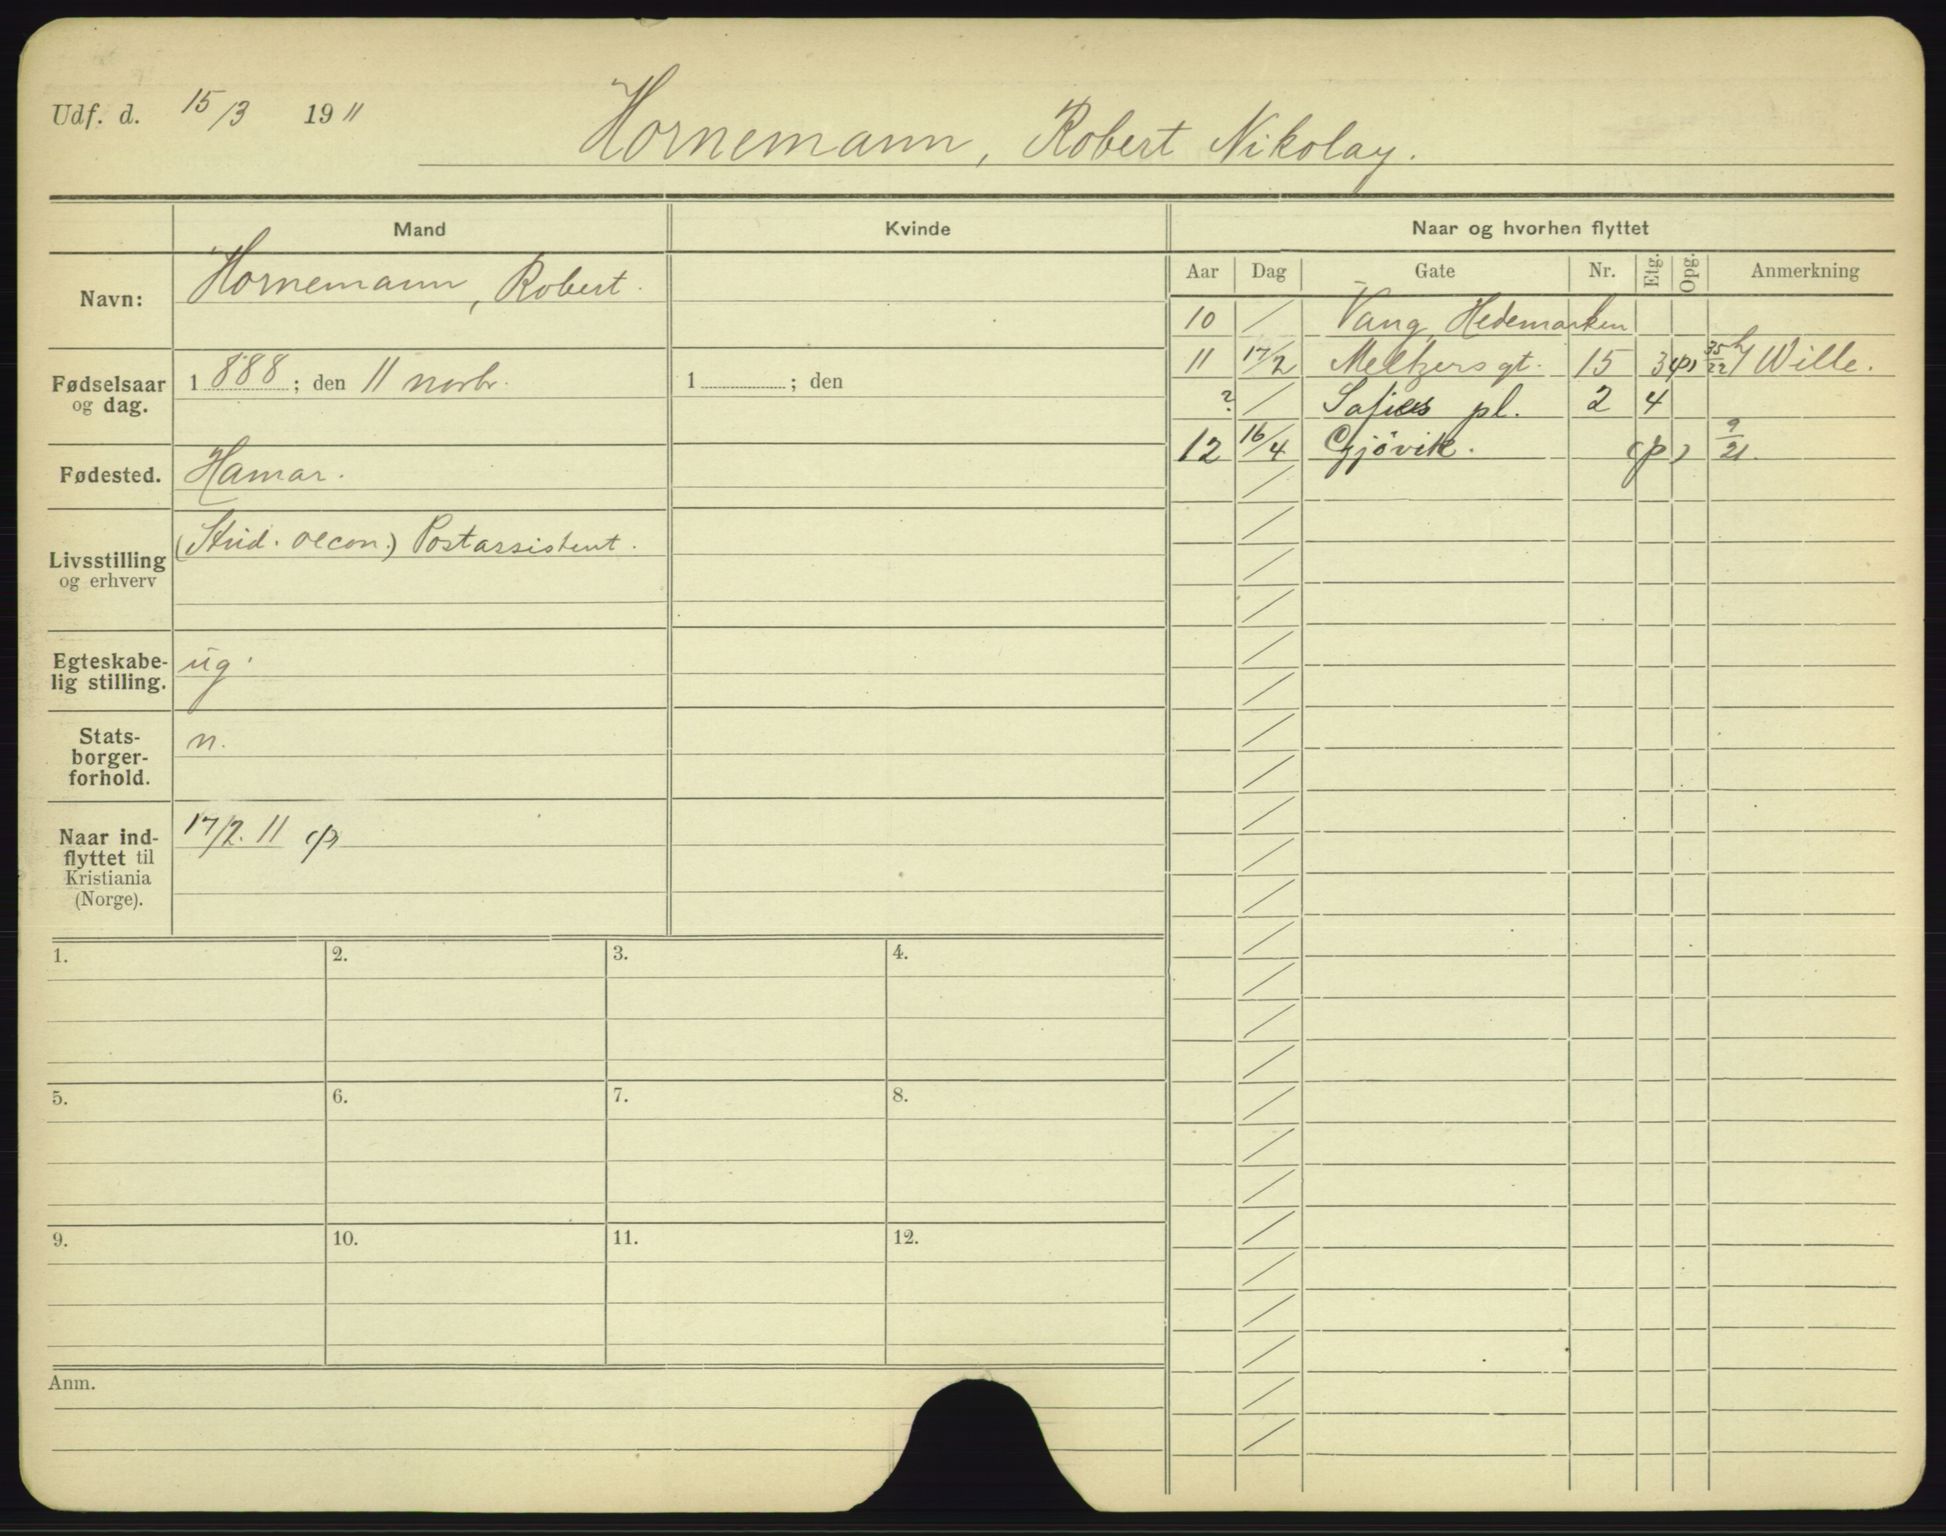 Udf. d. 15/3 1911
Hornemann, Robert Nikolay.
Mand Kvinde Naar og hvorhen flyttet
Navn: Hornemann, Robert.
Fødselsaar og dag. 1888; den 11 novbr. 1 ; den
Fødested. Hamar.
Livsstilling og erhverv (Stud. oecon.) Postassistent.
Egteskabe-
lig stilling. ug.
Stats-
borger-
forhold. n.
Naar ind-
flyttet til
Kristiania
(Norge). 17/2. 11 (p)
1. 2. 3. 4.
5. 6. 7. 8.
9. 10. 11. 12.
Anm.
Aar Dag Gate Nr. Etg. Opg. Anmerkning
10 / Vang, Hedemarken
11 17/2 Meltzers gt. 15 3 (p) 35/22 h/ Wille.
? / Sofies pl. 2 4
12 16/4 Gjövik. (p) 9/21.